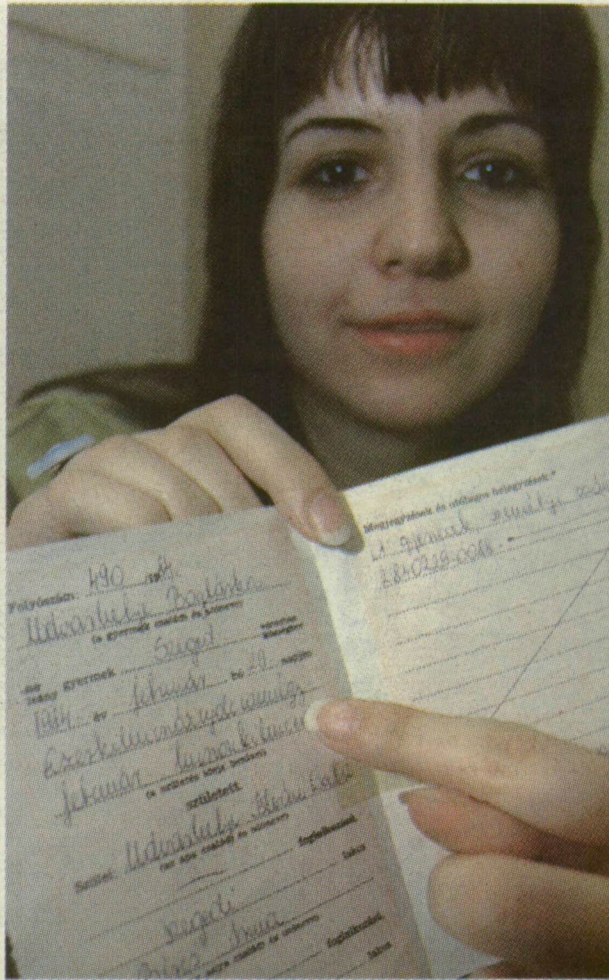 Folyószám: 490 1984.
Udvarhelyi Boglárka
(a gyermek családi és utóneve)
leány gyermek Szeged városban
községben
1984. év február hó 29. napján
Ezerkilencszáznyolcvannégy
február huszonkilenc
(a születés ideje betűvel)
született.
Szülei: Udvarhelyi
(az apa családi és utóneve)
foglalkozású,
szegedi lakos
foglalkozású,
lakos
Megjegyzések és utólagos bejegyzések:*
A gyermek személyi
2840229